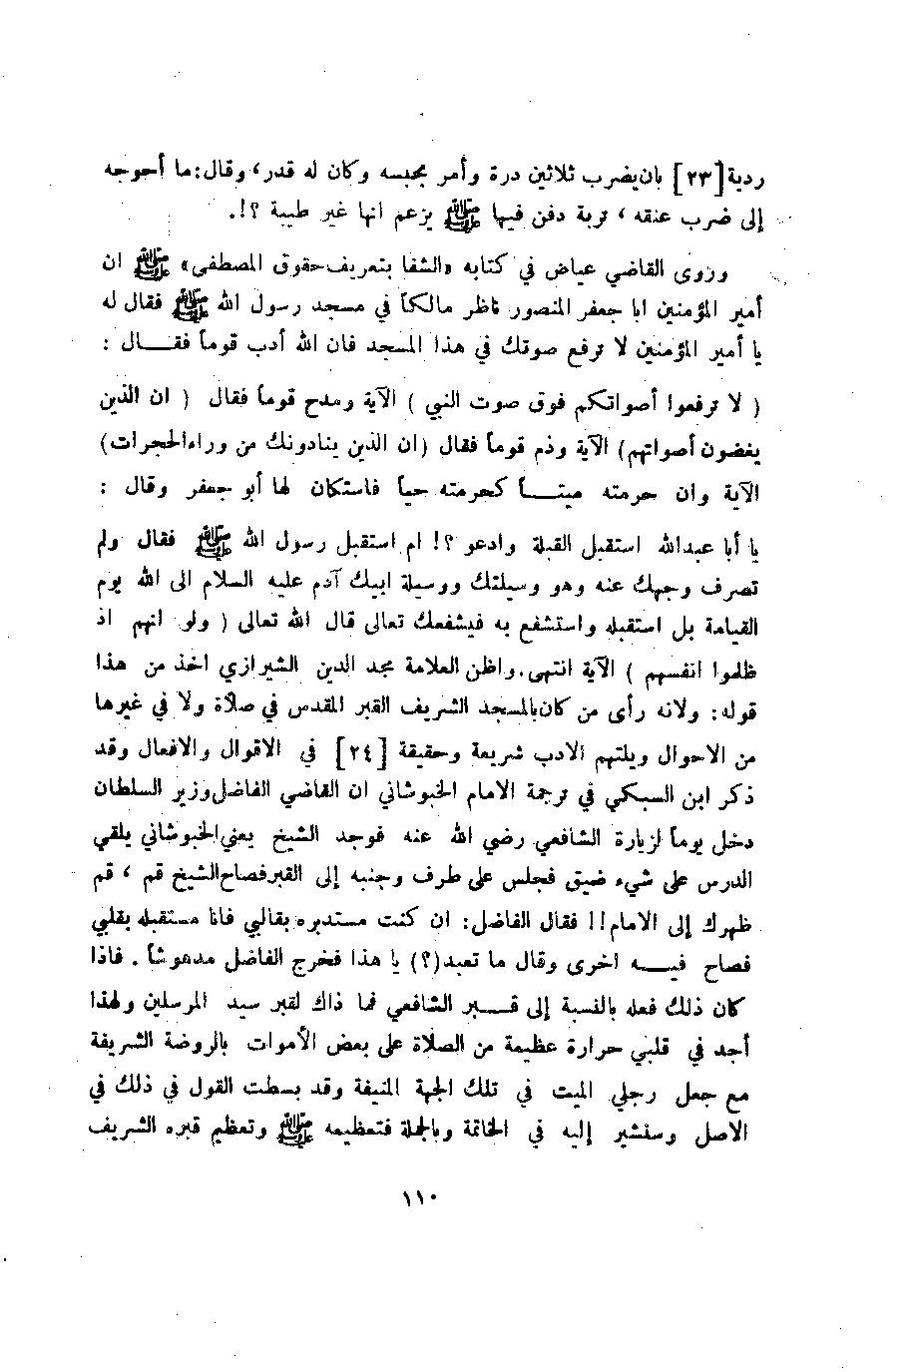 ردية[٢٣] بان يضرب ثلاثين درة وأمر بحبسه وكان له قدر، وقال:ما أحوجه
إلى ضرب عنقه ، تربة دفن فيها ﷺ يزعم انها غير طيبة ؟!.
وروى القاضي عياض في كتابه «الشفا بتعريف حقوق المصطفى» ﷺ ان
أمير المؤمنين ابا جعفر المنصور ناظر مالكاً في مسجد رسول الله ﷺ فقال له
يا أمير المؤمنين لا ترفع صوتك في هذا المسجد فان الله أدب قوماً فقـــال :
( لا ترفعوا أصواتكم فوق صوت النبي ) الآية ومدح قوماً فقال ( ان الذين
يغضون أصواتهم) الآية وذم قوماً فقال (ان الذين ينادونك من وراءالحجرات)
الآية وان حرمته ميتـــاً كحرمته حياً فاستكان لها أبو جعفر وقال :
يا أبا عبدالله استقبل القبلة وادعو ؟! ام استقبل رسول الله ﷺ فقال ولم
تصرف وجهك عنه وهو وسيلتك ووسيلة ابيك آدم عليه السلام الى الله يوم
القيامة بل استقبله واستشفع به فيشفعك تعالى قال الله تعالى ( ولو انهم اذ
ظلموا انفسهم ) الآية انتهى.واظن العلامة مجد الدين الشيرازي اخذ من هذا
قوله: ولانه رأى من كان بالمسجد الشريف القبر المقدس في صلاة ولا في غيرها
من الاحوال ويلتهم الادب شريعة وحقيقة [٢٤] في الاقوال والافعال وقد
ذكر ابن السبكي في ترجمة الامام الخبوشاني ان القاضي الفاضل وزير السلطان
دخل يوماً لزيارة الشافعي رضي الله عنه فوجد الشيخ يعني الخبوشاني يلقي
الدرس على شيء ضيق فجلس على طرف وجنبه إلى القبر فصاح الشيخ قم ، قم
ظهرك إلى الامام!! فقال الفاضل: ان كنت مستدبره بقالبي فانا مستقبله بقلبي
فصاح فيـــه اخرى وقال ما تعبد(؟) يا هذا فخرج الفاضل مدهوشاً . فاذا
كان ذلك فعله بالنسبة إلى قـــبر الشافعي فما ذاك لقبر سيد المرسلين ولهذا
أجد في قلبي حرارة عظيمة من الصلاة على بعض الأموات بالروضة الشريفة
مع جعل رجلي الميت في تلك الجهة المنيفة وقد بسطت القول في ذلك في
الاصل وسنشير إليه في الخاتمة وبالجملة فتعظيمه ﷺ وتعظيم قبره الشريف
١١٠